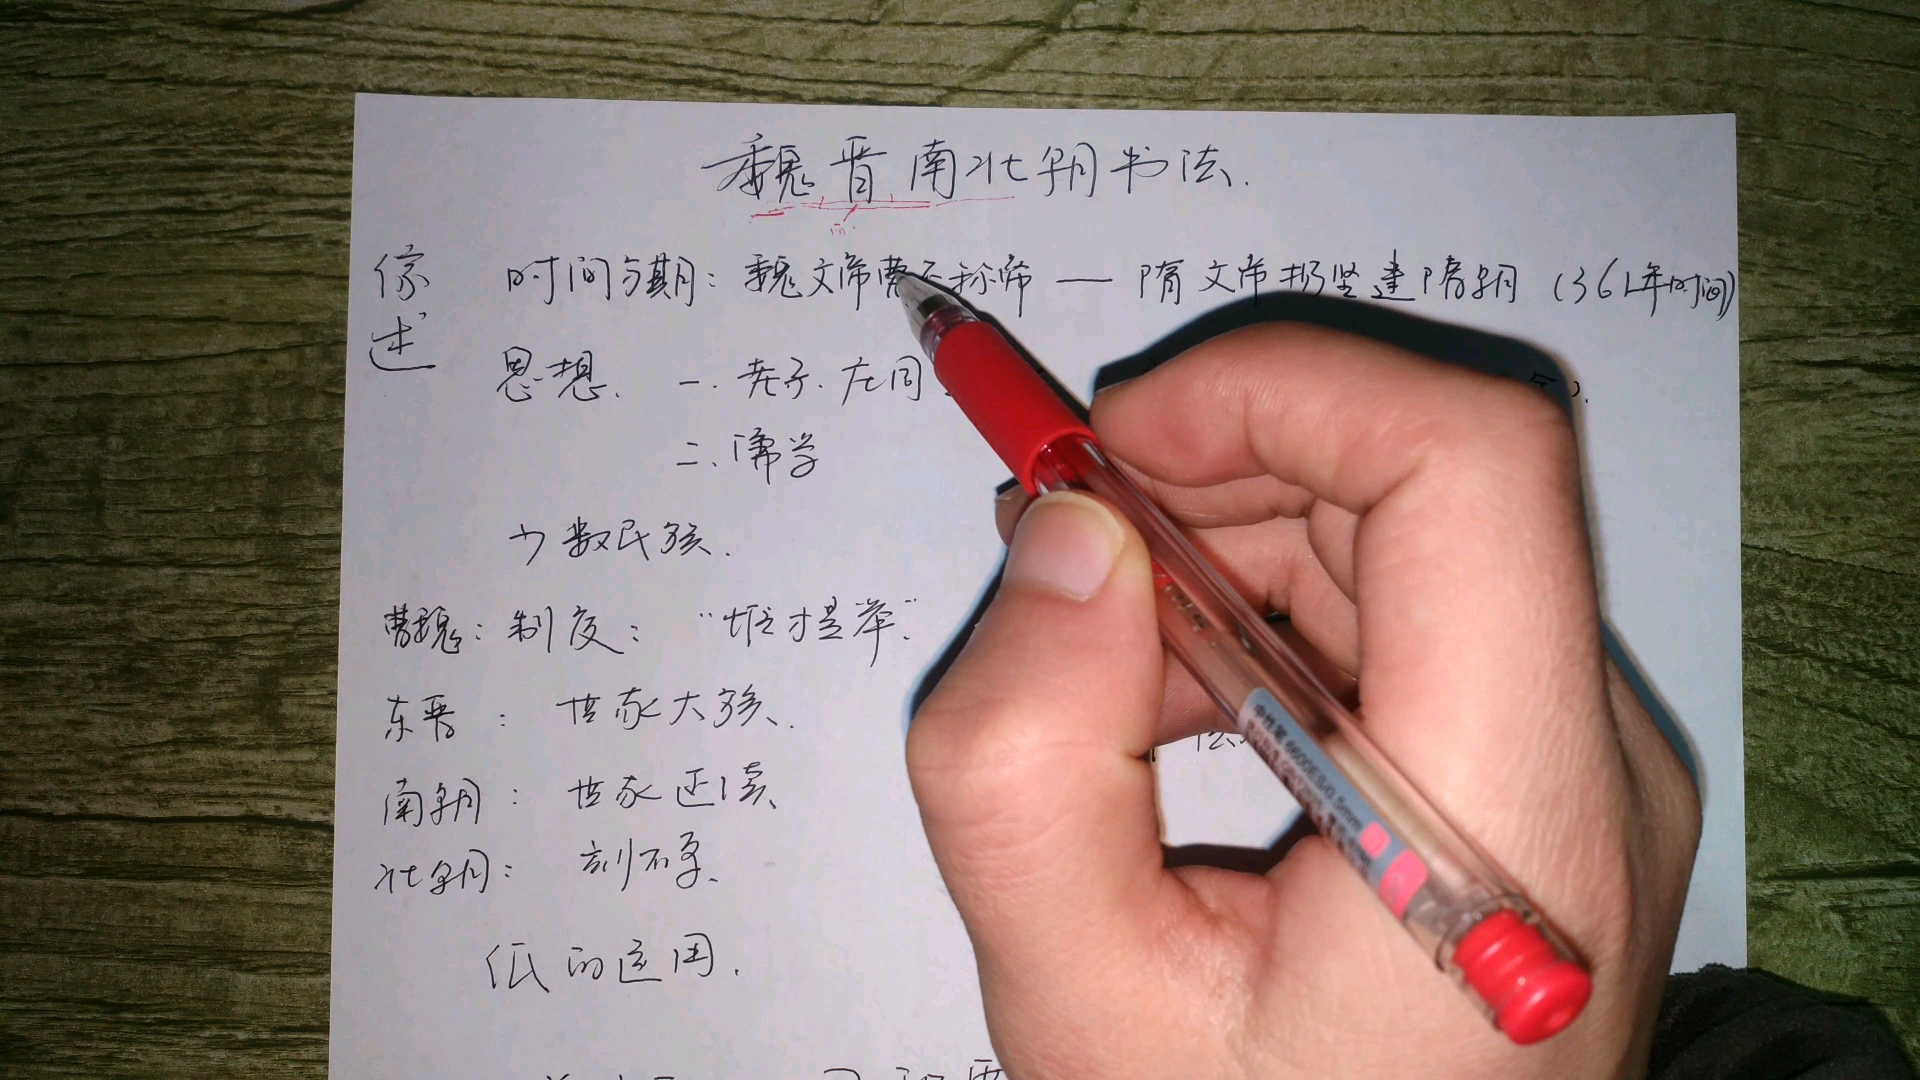 魏晋南北朝书法.
综述
时间分期：魏文帝曹丕称帝 — 隋文帝杨坚建隋朝（361年时间）
思想. 一. 老子. 庄周
二. 佛学
少数民族.
曹魏：制度："唯才是举".
东晋：世家大族、
南朝：世家延续、
北朝：刻石多、
纸的运用.
中性笔 6600ES/0.5mm